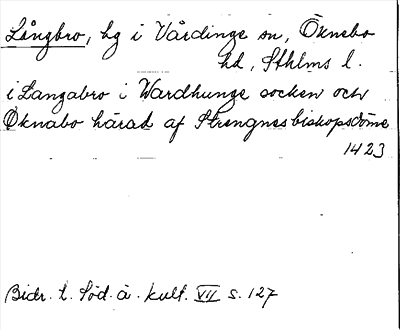 Långbro, hg i Vårdinge sn, Öknebo
hd, Sthlms l.
i Langabro i Wardhunge socken och
Øknabo härad af Strengnes biskopsdöme
1423
Bidr. t. Söd. ä. kult. VII s. 127